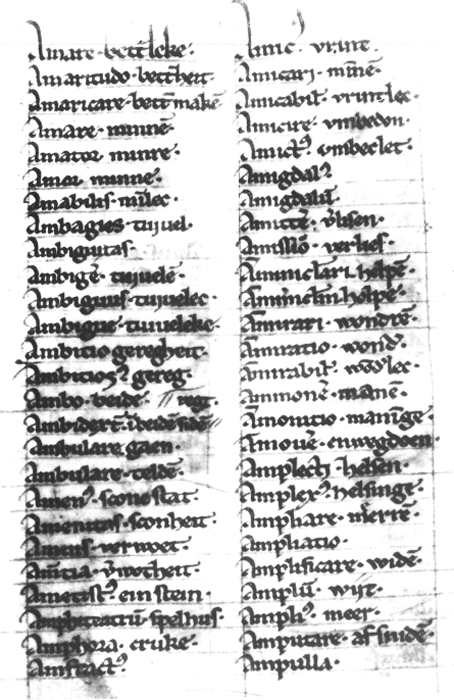 Amare · bett̄leke ·
Amaritudo · bett̄heit ·
Amaricare · bett̄ makē
Amare · minnē ·
Amator · minre ·
Amor · minne ·
Amabilis · mīlec ·
Ambages · tuyuel ·
Ambiguitas ·
Ambigē · tuyuelē ·
Ambiguus · tuyuelec ·
Ambigue · tuyueleke ·
Ambitio geregheit ·
Ambitiosꝰ gereg ·
Ambo · beide ·
Ambidext̄
Ambulare gaen ·
Ambulare · teldē ·
Amenꝰ · scone stat ·
Amenitas · sconheit ·
Amens · verwoet ·
Am̄tia · v̄woetheit ·
Ametistꝰ · ein stein ·
Amphiteatrū · spelhus ·
Amphora · cruke ·
Amfractꝰ
Amic · vrint ·
Amicari · mīnē ·
Amicabil̄ · vrintlec ·
Amicire · vmbedon ·
Amictꝰ · vmbeclet ·
Amigdalꝰ
Amigdalū
Amittē · v̄lisen ·
Amissio · verlies ·
Amminic̄lari · helpē ·
Amminic̄lm̄ helpe ·
Amirari · wondrē ·
Amiratio · wond̄ ·
Amirabil̄ ·
Ammonē · manē ·
Amonitio · manīge ·
Amouē · enwegdoen ·
Amplecti · helsen ·
Amplexꝰ · helsinge ·
Ampliare · mērrē ·
Ampliatio ·
Amplificare · widē ·
Amplū · wijt ·
Ampliꝰ · meer ·
Amputare · af snidē ·
Ampulla ·